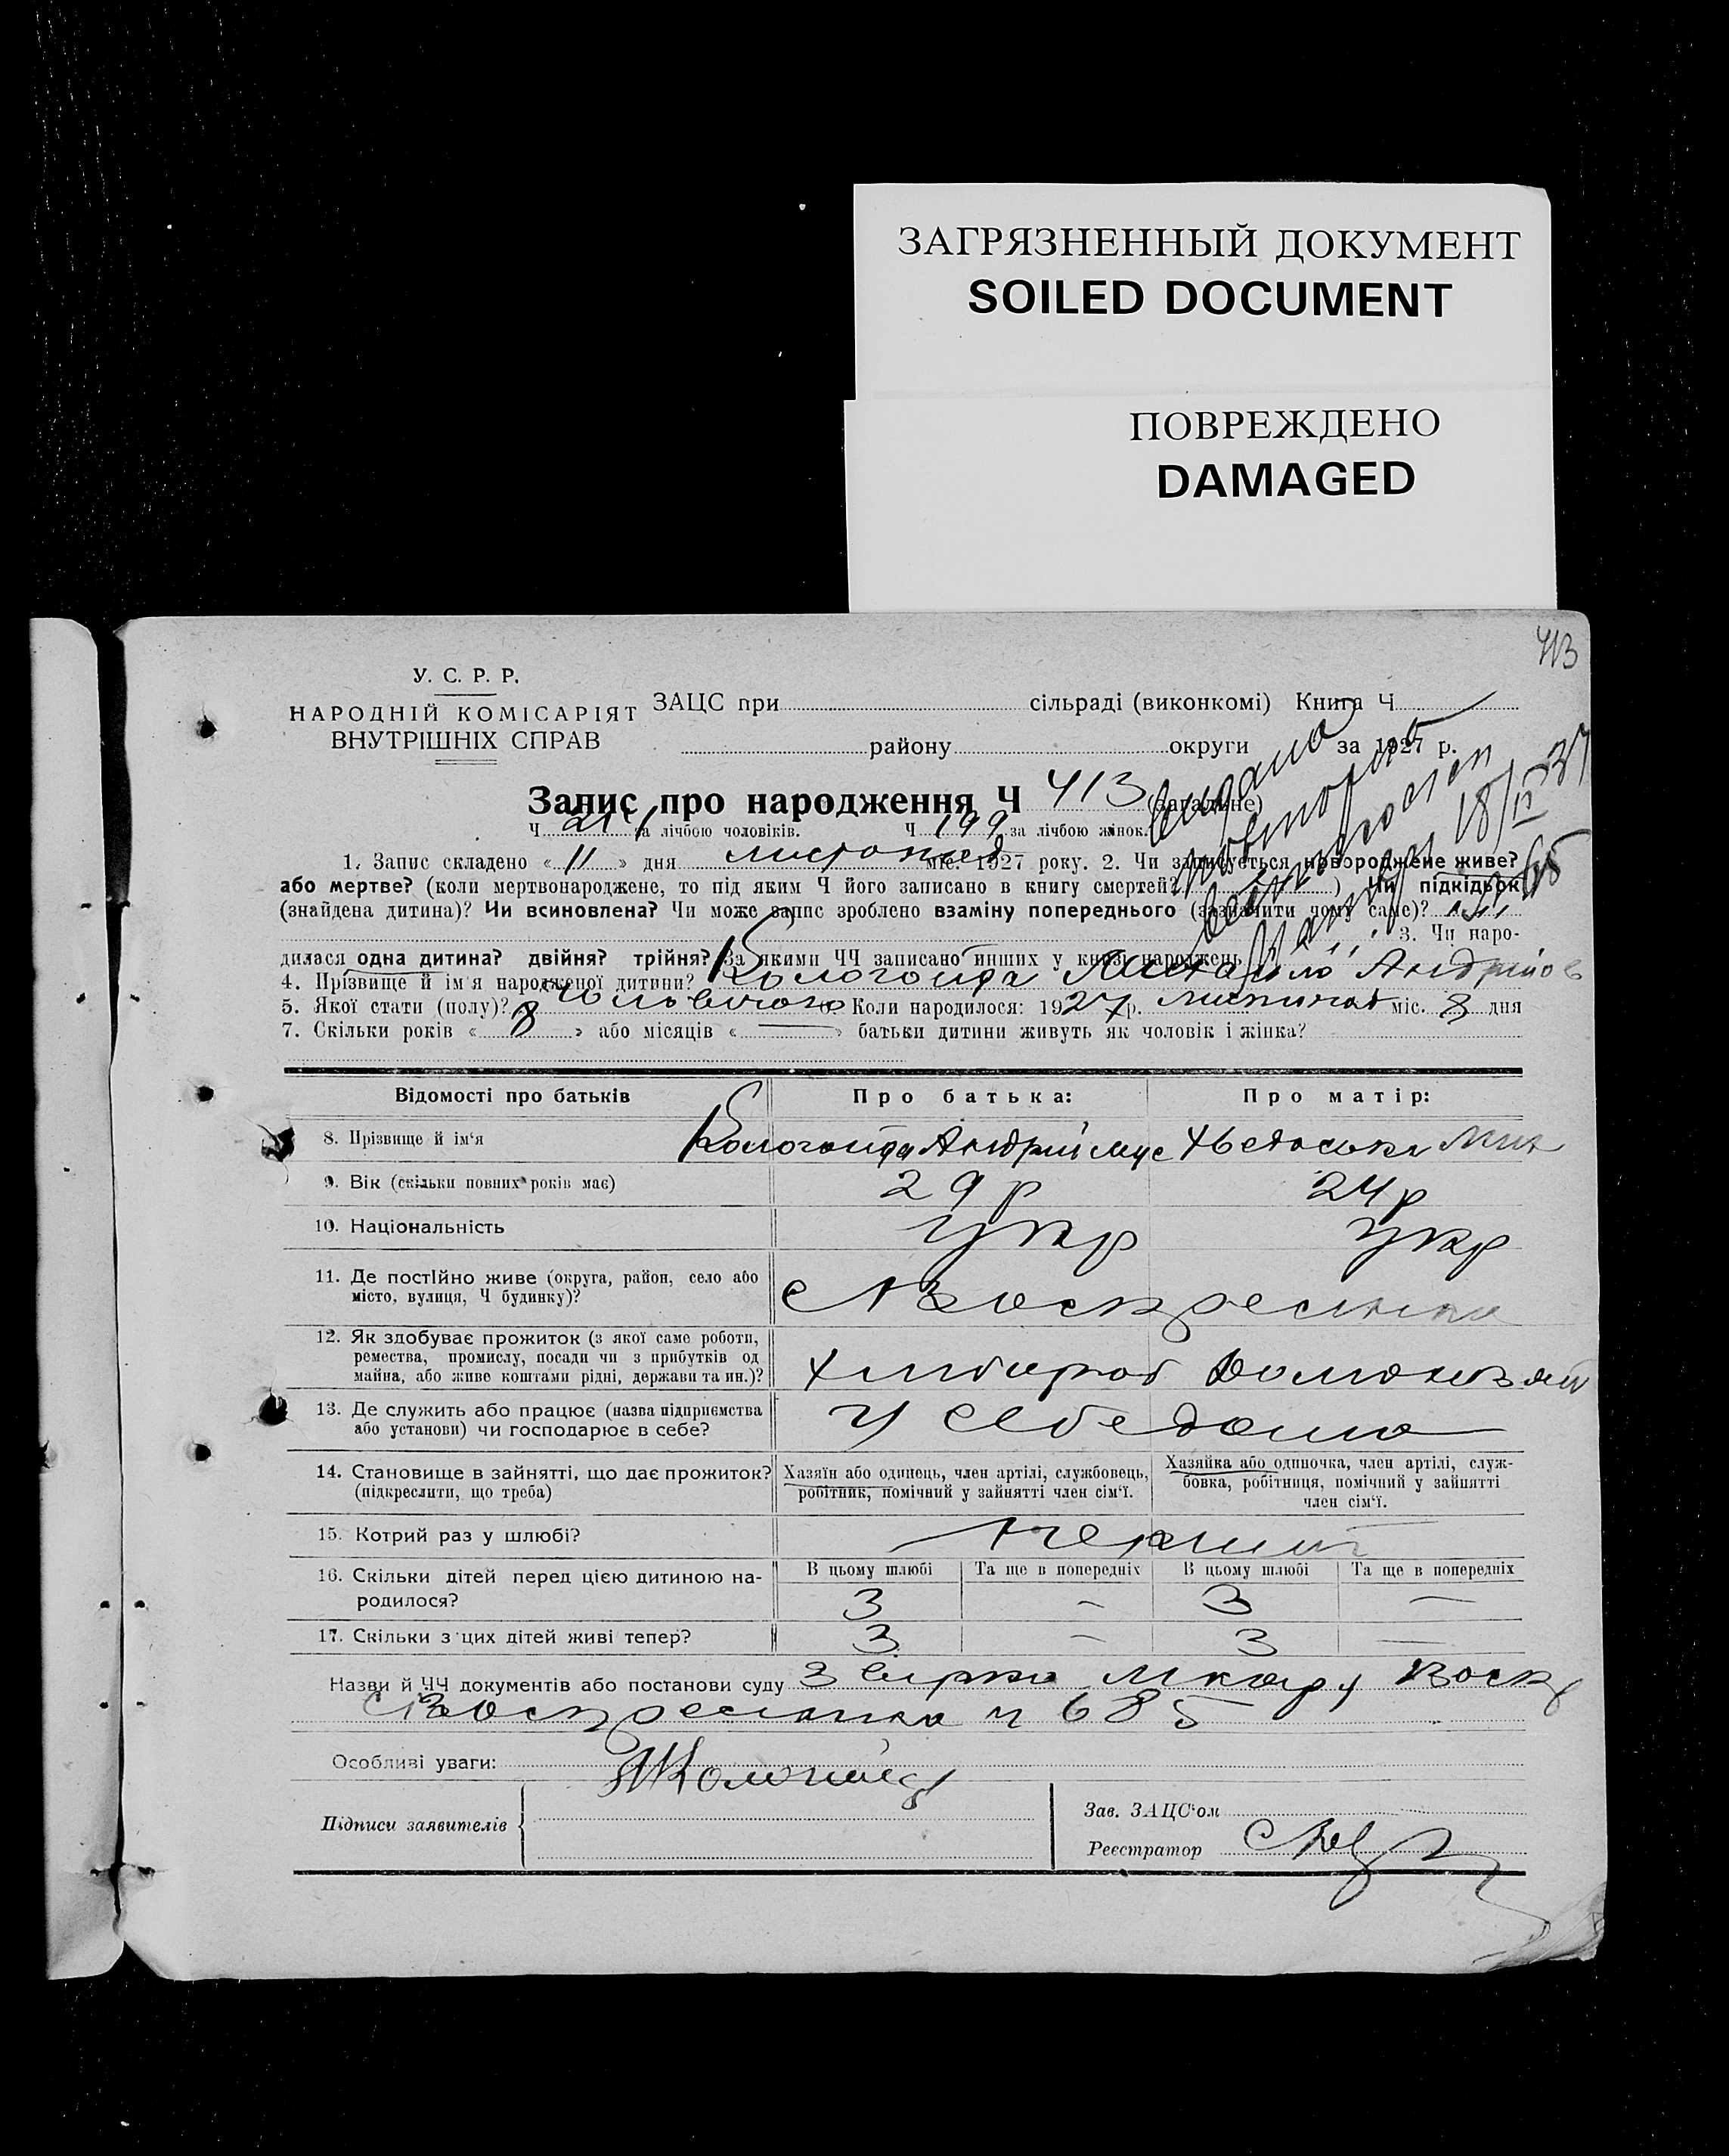 ЗАГРЯЗНЕННЫЙ ДОКУМЕНТ
SOILED DOCUMENT
ПОВРЕЖДЕНО
DAMAGED
413
У. С. Р. Р.
НАРОДНІЙ КОМІСАРІЯТ
ВНУТРІШНІХ СПРАВ
ЗАЦС при сільраді (виконкомі) Книга Ч
району округи за 1927 р.
Запис про народження Ч 413 (загальне)
Ч 214 за лічбою чоловіків. Ч 199 за лічбою жінок.
видано
повторно
18/IV 37
1. Запис складено «11» дня листопад міс. 1927 року. 2. Чи записується новороджене живе?
або мертве? (коли мертвонароджене, то під яким Ч його записано в книгу смертей? ) Чи підкідьок
(знайдена дитина)? Чи всиновлена? Чи може запис зроблено взаміну попереднього (зазначити чому саме)?
3. Чи наро-
дилася одна дитина? двійня? трійня? За якими ЧЧ записано инших у книзі народжень
4. Прізвище й ім'я народженої дитини? Кологоида Михайло Андрійов
5. Якої стати (полу)? Чоловічого 6. Коли народилося: 1927 р. листопад міс. 8 дня
7. Скільки років «8» або місяців «—» батьки дитини живуть як чоловік і жінка?
Відомості про батьків Про батька: Про матір:
8. Прізвище й ім'я Кологоида Андрий Мус Хведоська Мик
9. Вік (скільки повних років має) 29 р 24 р
10. Національність Укр Укр
11. Де постійно живе (округа, район, село або
місто, вулиця, Ч будинку)?
с Воскресенка
12. Як здобуває прожиток (з якої саме роботи,
ремества, промислу, посади чи з прибутків од
майна, або живе коштами рідні, держави та ин.)?
Хлібороб
13. Де служить або працює (назва підприємства
або установи) чи господарює в себе?
У себе дома
14. Становище в зайнятті, що дає прожиток?
(підкреслити, що треба)
Хазяїн або одинець, член артілі, службовець,
робітник, помічний у зайнятті член сім'ї.
Хазяйка або одиночка, член артілі, служ-
бовка, робітниця, помічний у зайнятті
член сім'ї.
15. Котрий раз у шлюбі? перший
16. Скільки дітей перед цією дитиною на-
родилося?
В цьому шлюбі Та ще в попередніх В цьому шлюбі Та ще в попередніх
3 – 3 —
17. Скільки з цих дітей живі тепер? 3 – 3 —
Назви й ЧЧ документів або постанови суду
с Воскресенка ч 685
Особливі уваги:
Кологоида
Підписи заявителів
Зав. ЗАЦС'ом
Реєстратор